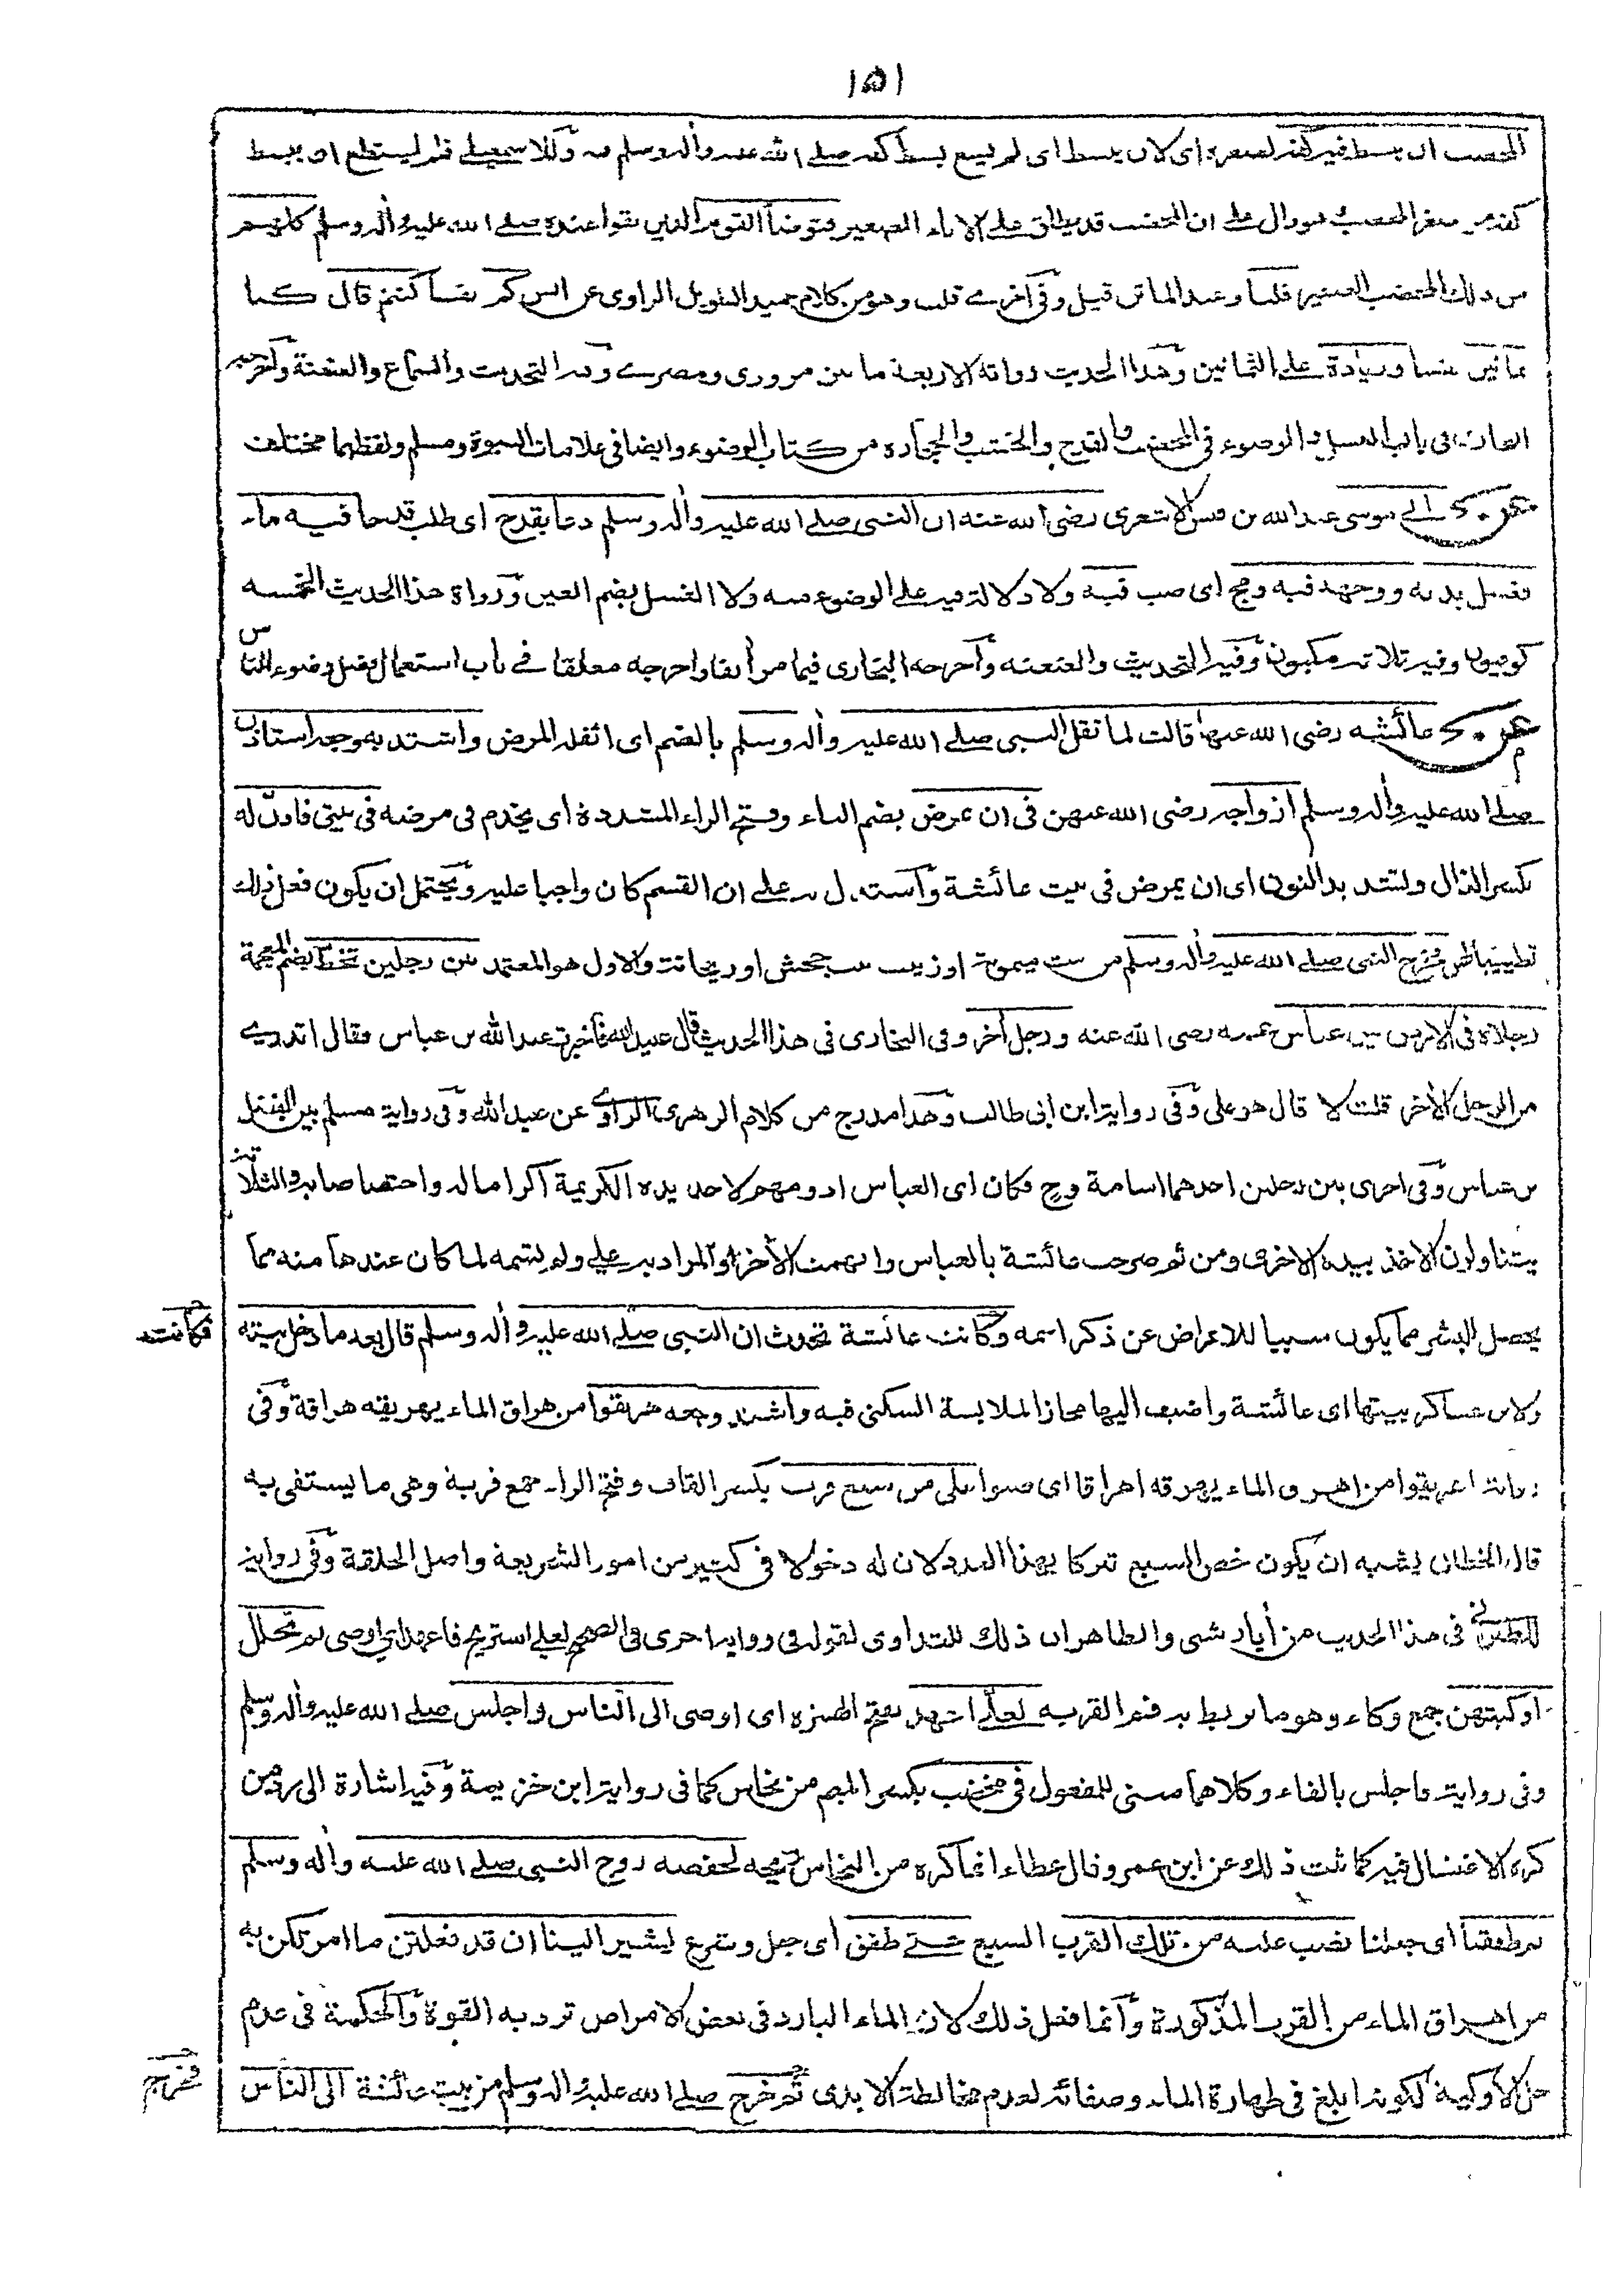 ١٥١
المخضب ان يبسط فيه كفه لصغره اى لان يبسط اى لم يسع بسط كفه صلى الله عليه وأله وسلم فيه وللاسمعيلى فلم يستطع ان يبسط
كفه من صغر المخضب وهو دال على ان المخضب قد يطلق على الاناء الصغير فتوضأ القوم الذين بقوا عنده صلى الله عليه وأله وسلم كلهم
من ذلك المخضب الصغير قلنا وعند الماتن قيل وفى اخرى قلت وهو من كلام حميد الطويل الراوى عن انس كم نفسا كنتم قال كنا
ثمانين نفسا وزيادة على الثمانين وهذا الحديث رواته الاربعة ما بين مروزى ومصرى وفيه التحديث والسماع والعنعنة واخرجه
البخارى فى باب الغسل والوضوء فى المخضب والقدح والخشب والحجارة من كتاب الوضوء وايضا فى علامات النبوة ومسلم ولفظهما مختلف
عن ابى موسى عبد الله بن قيس الاشعرى رضى الله عنه ان النبى صلى الله عليه وأله وسلم دعا بقدح اى طلب قدحا فيه ماء
فغسل يديه ووجهه فيه ومج اى صب فيه ولا دلالة فيه على الوضوء منه ولا الغسل بضم الغين ورواة هذا الحديث الخمسة
كوفيون وفيه ثلاثة مكيون وفيه التحديث والعنعنة واخرجه البخارى فيما مر أنفا واخرجه معلقا فى باب استعمال فضل وضوء الناس
عن عائشة رضى الله عنها قالت لما ثقل النبى صلى الله عليه وأله وسلم بالضم اى اثقله المرض واشتد به وجعه استاذن
صلى الله عليه وأله وسلم ازواجه رضى الله عنهن فى ان يمرض بضم الياء وفتح الراء المشددة اى يخدم فى مرضه فى بيتى فاذن له
بكسر الذال وتشديد النون اى ان يمرض فى بيت عائشة واستدل به على ان القسم كان واجبا عليه ويحتمل ان يكون فعل ذلك
تطييبا لهن فخرج النبى صلى الله عليه وأله وسلم من بيت ميمونة او زينب بنت جحش او ريحانة والاول هو المعتمد بين رجلين تخط بضم المعجمة
رجلاه فى الارض بين عباس عمه رضى الله عنه ورجل أخر وفى البخارى فى هذا الحديث قال عبيد الله فاخبرت عبد الله بن عباس فقال اتدرى
من الرجل الأخر قلت لا قال هو على وفى رواية ابن ابى طالب وهذا مدرج من كلام الزهرى الراوى عن عبيد الله وفى رواية مسلم بين الفضل
بن عباس وفى اخرى بين رجلين احدهما اسامة وح فكان اى العباس ادومهم لاخذ يده الكريمة اكراما له واختصاصا به والثلاثة
يتناولون الاخذ بيده الاخرى ومن ثم صرحت عائشة بالعباس وابهمت الأخر او المراد به على ولم تسمه لما كان عندها منه مما
يحصل للبشر مما يكون سببا للاعراض عن ذكر اسمه وكانت عائشة تحدث ان النبى صلى الله عليه وأله وسلم قال بعد ما دخل بيته
فكانت
ولابن عساكر بيتها اى عائشة واضيف اليها مجازا لملابسة السكنى فيه واشتد وجعه هريقوا من هراق الماء يهريقه هراقة وفى
رواية اهريقوا من اهرق الماء يهرقه اهراقا اى صبوا على من سبع قرب بكسر القاف وفتح الراء جمع قربة وهى ما يستقى به
قال الخطابى يشبه ان يكون خص السبع تبركا بهذا العدد لان له دخولا فى كثير من امور الشريعة واصل الخلقة وفى رواية
للطبرانى فى هذا الحديث من أبار شتى والظاهر ان ذلك للتداوى لقوله فى رواية اخرى فى الصحيح لعلى استريح فاعهد اى اوصى لم تحلل
اوكيتهن جمع وكاء وهو ما يربط به فم القربة لعلى اعهد بفتح الهمزة اى اوصى الى الناس واجلس صلى الله عليه وأله وسلم
وفى رواية فاجلس بالفاء وكلاهما مبنى للمفعول فى مخضب بكسر الميم من نحاس كما فى رواية ابن خزيمة وفيه اشارة الى رد من
كره الاغتسال فيه كما ثبت ذلك عن ابن عمر وقال عطاء انما كره من النحاس ريحه لحفصة زوج النبى صلى الله عليه وأله وسلم
ثم طفقنا اى جعلنا نصب عليه من تلك القرب السبع حتى طفق اى جعل وشرع يشير الينا ان قد فعلتن ما امرتكن به
من اهراق الماء من القرب المذكورة وانما فعل ذلك لان الماء البارد فى بعض الامراض ترد به القوة والحكمة فى عدم
حل الاوكية لكونه ابلغ فى طهارة الماء وصفائه لعدم مخالطة الايدى ثم خرج صلى الله عليه وأله وسلم من بيت عائشة الى الناس
فخرج